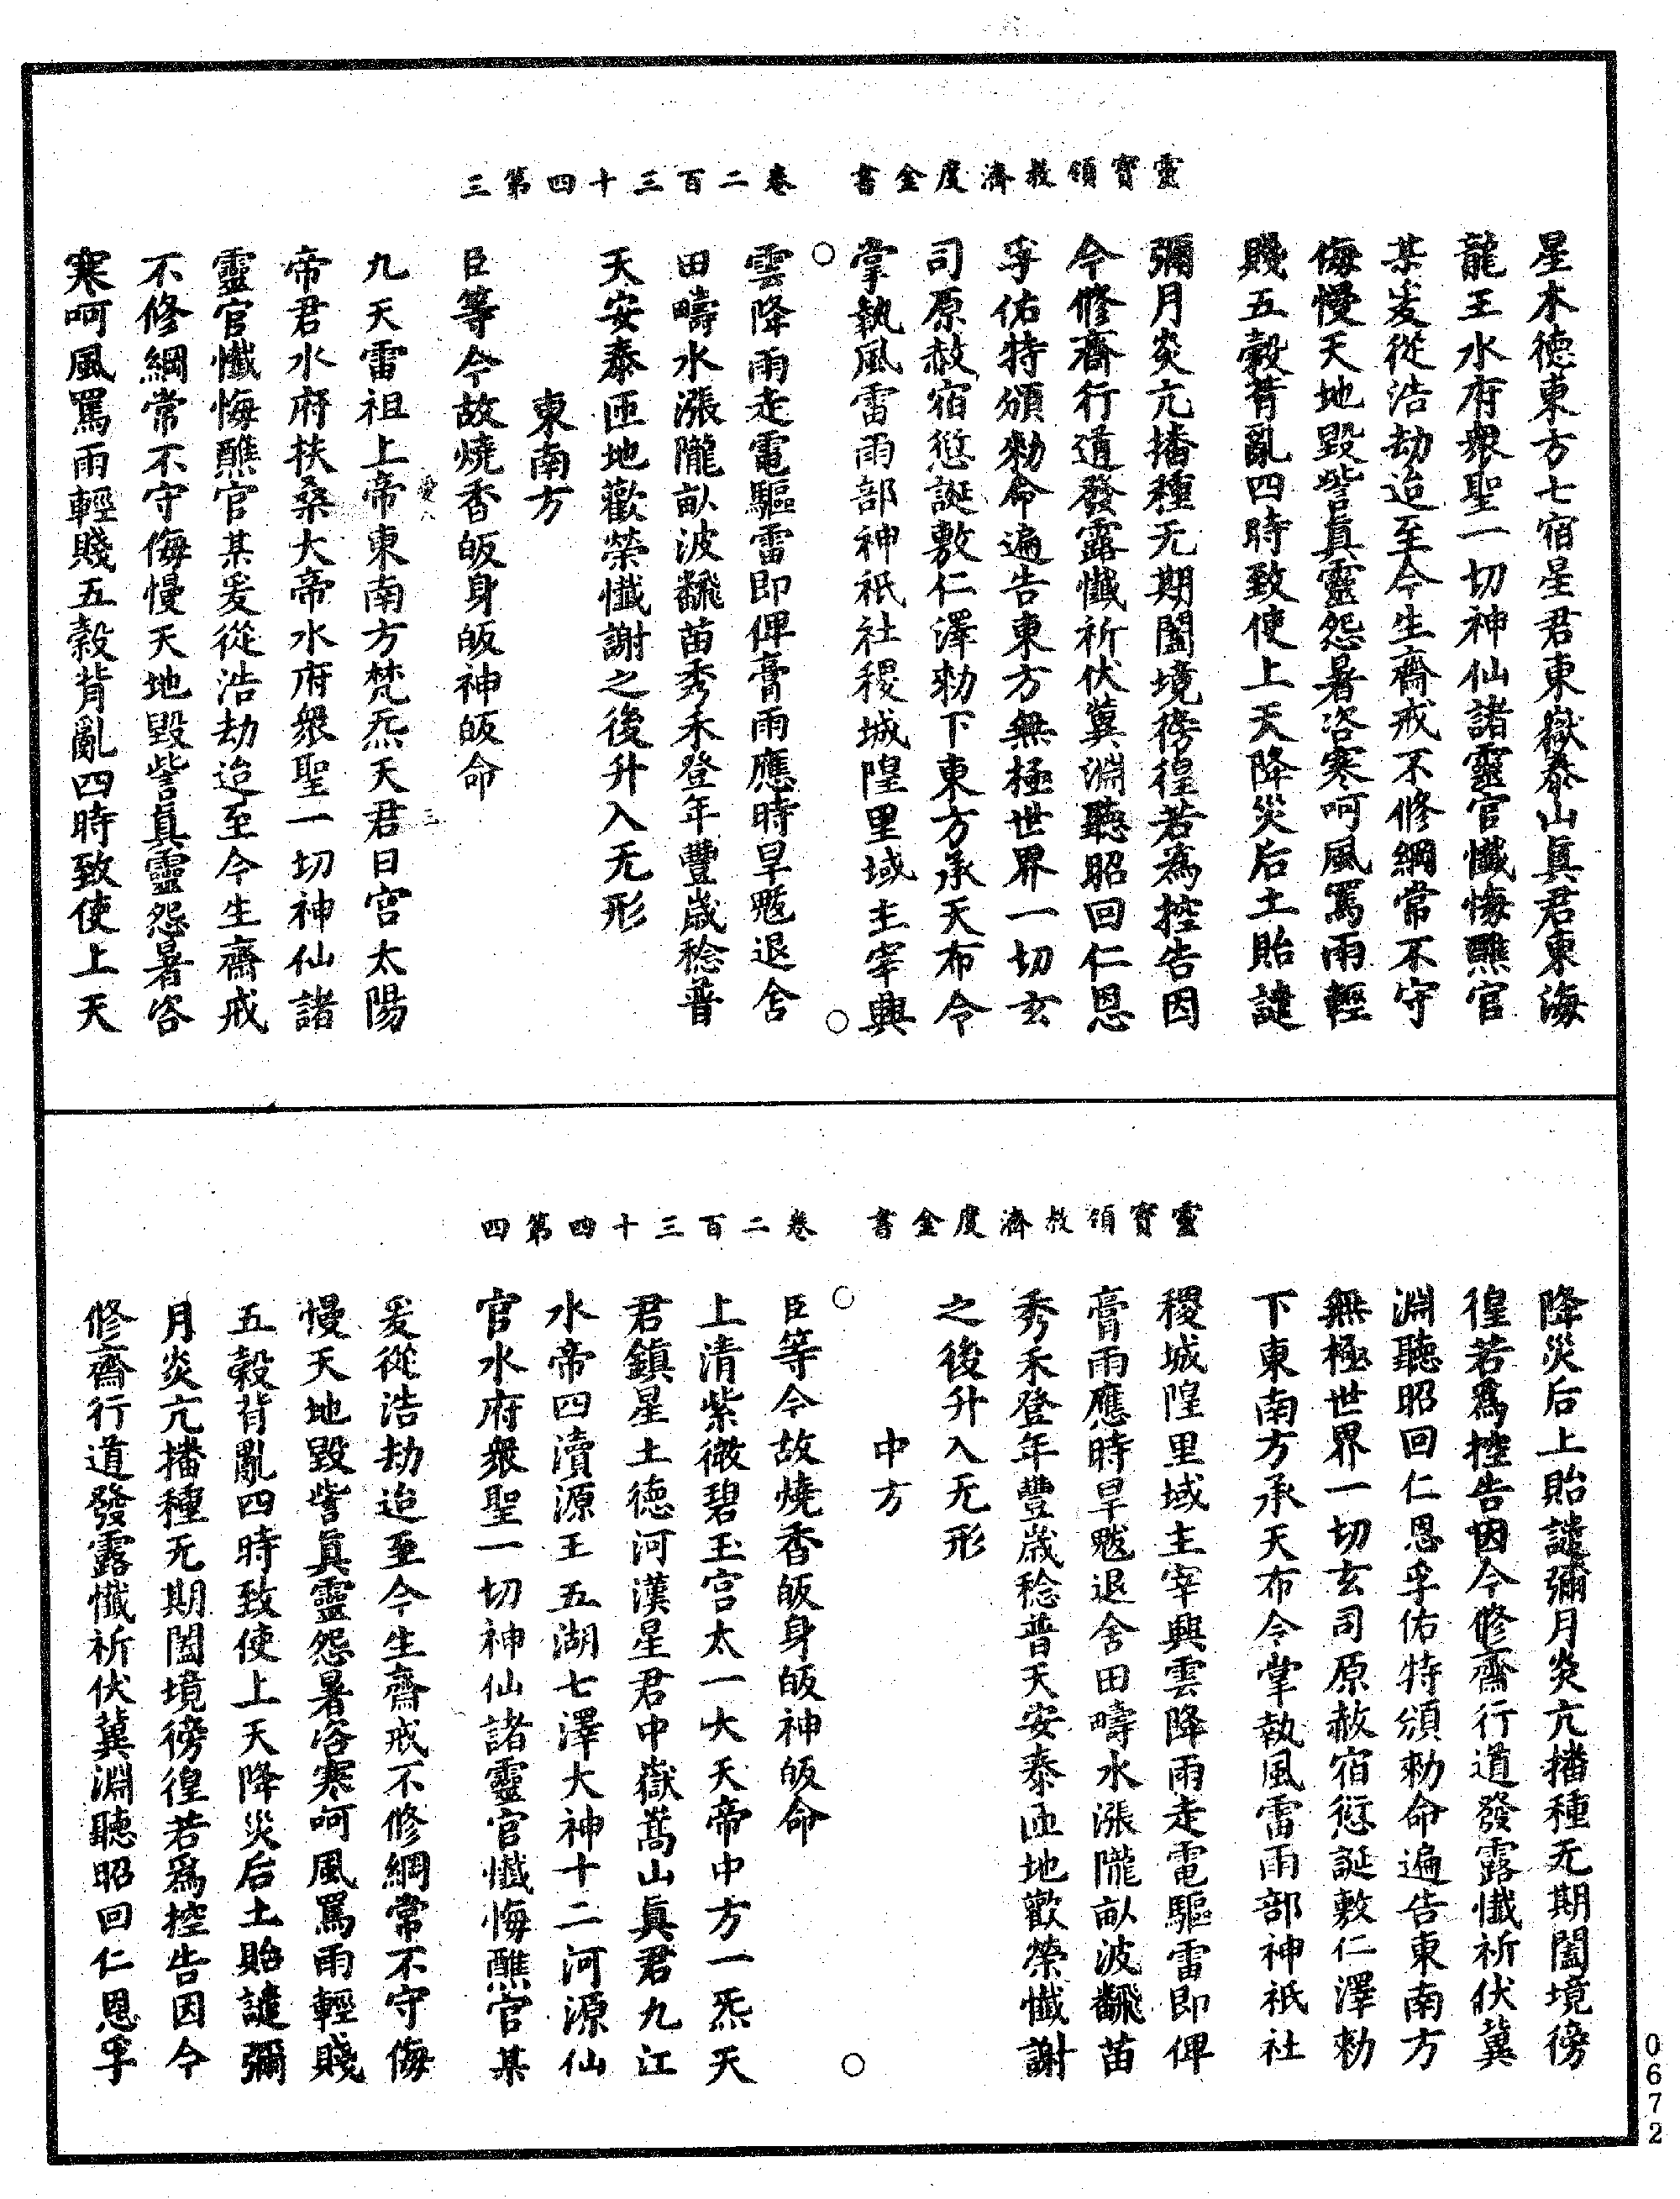 靈寶領教濟度金書　卷二百三十四第三
星木德東方七宿星君東嶽泰山眞君東海
龍王水府衆聖一切神仙諸靈官懺悔醮官
某爰從浩劫迨至今生齋戒不修綱常不守
侮慢天地毀訾眞靈怨暑咨寒呵風罵雨輕
賤五穀背亂四時致使上天降災后土貽譴
彌月炎亢播種无期闔境徬徨若為控告因
今修齋行道發露懺祈伏冀淵聽昭回仁恩
孚佑特頒勑命遍告東方無極世界一切玄
司原赦宿愆誕敷仁澤勑下東方承天布令
掌執風雷雨部神祇社稷城隍里域主宰興
雲降雨走電驅雷即俾膏雨應時旱魃退舍
田疇水漲隴畝波飜苗秀禾登年豐歲稔普
天安泰匝地歡榮懺謝之後升入无形
東南方
臣等今故燒香皈身皈神皈命
九天雷祖上帝東南方梵炁天君日宮太陽
帝君水府扶桑大帝水府衆聖一切神仙諸
靈官懺悔醮官某爰從浩劫迨至今生齋戒
不修綱常不守侮慢天地毀訾眞靈怨暑咨
寒呵風罵雨輕賤五穀背亂四時致使上天
靈寶領教濟度金書　卷二百三十四第四
降災后土貽譴彌月炎亢播種无期闔境徬
徨若爲控告因今修齋行道發露懺祈伏冀
淵聽昭回仁恩孚佑特頒勑命遍告東南方
無極世界一切玄司原赦宿愆誕敷仁澤勑
下東南方承天布令掌執風雷雨部神祇社
稷城隍里域主宰興雲降雨走電驅雷即俾
膏雨應時旱魃退舍田疇水漲隴畝波飜苗
秀禾登年豐歲稔普天安泰匝地歡榮懺謝
之後升入无形
中方
臣等今故燒香皈身皈神皈命
上清紫微碧玉宮太一大天帝中方一炁天
君鎮星土德河漢星君中嶽嵩山眞君九江
水帝四瀆源王五湖七澤大神十二河源仙
官水府衆聖一切神仙諸靈官懺悔醮官某
爰從浩劫迨至今生齋戒不修綱常不守侮
慢天地毀訾眞靈怨暑咨寒呵風罵雨輕賤
五穀背亂四時致使上天降災后土貽譴彌
月炎亢播種无期闔境徬徨若爲控告因今
修齋行道發露懺祈伏冀淵聽昭回仁恩孚
0672